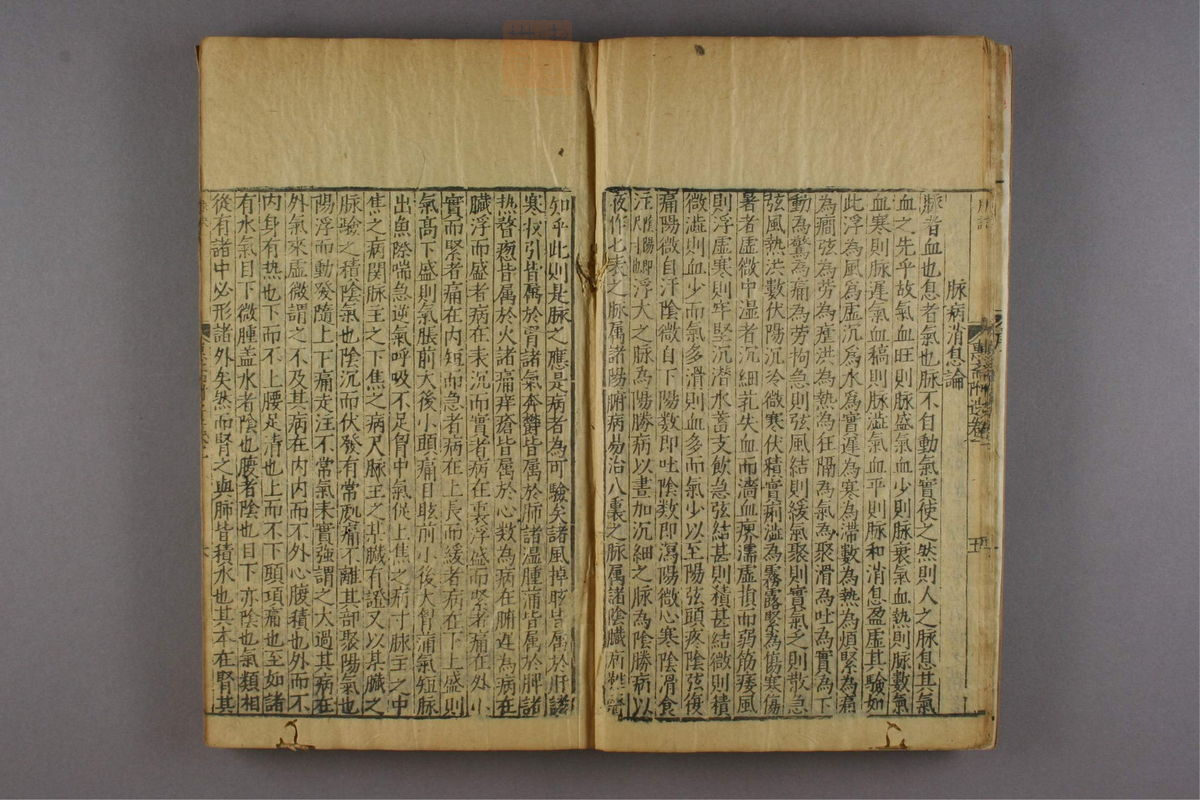 脉病消息論
脉者血也息者氣也脉不自動氣實使之然則人之脉息其氣
血之先乎故氣血旺則脉盛氣血少則脉衰氣血熱則脉數氣
血寒則脉遲氣血稿則脉澁氣血平則脉和消息盈虛其驗如
此浮為風為虛沉為水為實遲為寒為滯數為熱為煩緊為痛
為癎弦為勞為瘧洪為熱為狂隔為氣為聚滑為吐為實為下
動為驚為痛為勞拘急則弦風結則緩氣聚則實氣乏則散急
弦風熱洪數伏陽沉冷微寒伏積實痢澁為霧露緊為傷寒傷
暑者虛微中湿者沉細乳失血而濇血痺濡虛損而弱筋痿風
則浮虛寒則牢堅沉潛水蓄支飲急弦結甚則積甚結微則積
微澁則血少而氣多滑則血多而氣少以至陽弦頭疼陰弦復
痛陽微自汗陰微自下陽数即吐陰数即瀉陽微心寒陰滑食
注浮大之脉為陽陽病以晝加沉細之脉為陰陰病以
夜作七表之脉属諸陽腑病易治八裏之脉属諸陰臟病
知乎此則是脉之應是病者為可驗矣諸風掉眩皆属於肝諸
寒収引皆属於腎諸氣奔欝皆属於肺諸湿腫痛皆属於脾諸
熱瞀瘛皆属於火諸痛痒瘡皆属於心數為病在腑遲為病在
臟浮而盛者病在表沉而實者病在裏浮盛而緊者痛在外小
實而緊者痛在内短而急者病在上長而緩者病在下上盛則
氣高下盛則氣脹前大後小頭痛目眩前小後大胷滿氣短脉
出魚際喘急逆氣呼吸不足胷中氣伏上焦之病寸脉主之中
焦之病関脉主之下焦之病尺脉主之某臟有證又以某臟之
脉驗之積陰氣也陰沉而伏發有常処痛不離其部聚陽氣也
陽浮而動發隨上下痛走注不常氣來實強謂之大過其病在
外氣來虛微謂之不及其病在内内而不外心腹積也外而不
内身有热也下而不上腰足清也上而不下頭項痛也至如諸
有水氣目下微腫盖水者陰也腹者陰也目下亦陰也氣類相
從有諸中必形諸外矣然而腎之與肺皆積水也其本在腎其